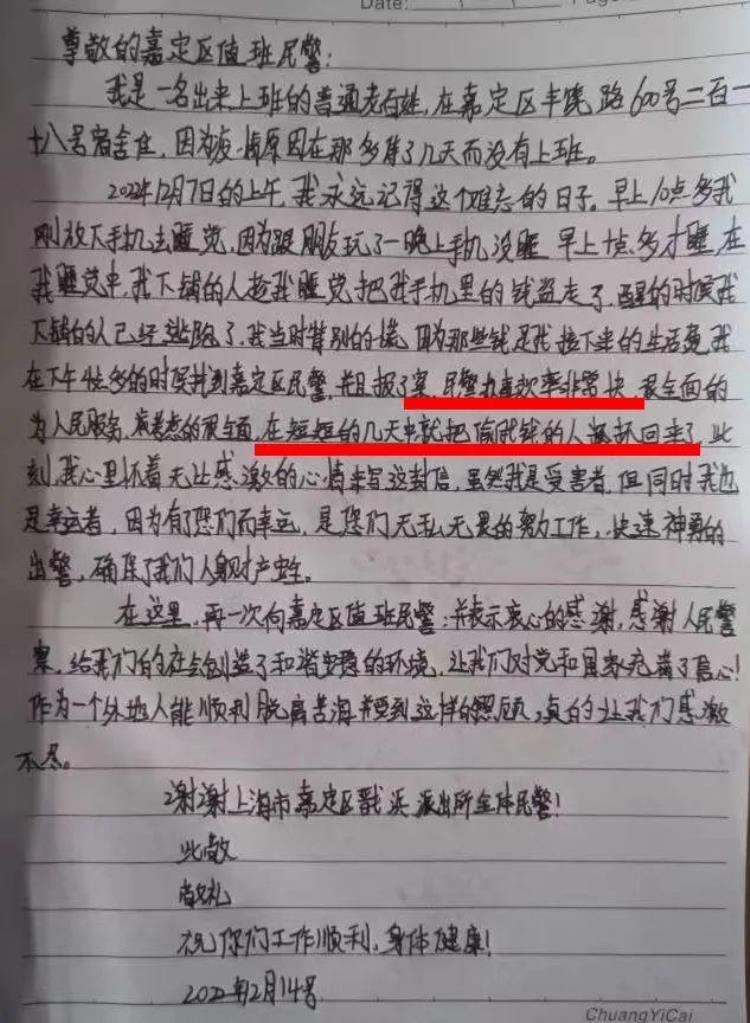 Date:
尊敬的嘉定区值班民警:
我是一名出来上班的普通老百姓,在嘉定区丰饶路600号二百一
十八号宿舍住,因为疫情原因在那多隹了几天而没有上班。
2022年12月7日的上午,我永远记得这个难忘的日子。早上10点多我
刚放下手机去睡觉,因为跟朋友玩了一晚上手机没睡 早上十点多才睡,在
我睡觉中,我下铺的人趁我睡觉把我手机里的钱盗走了,醒的时候我
下铺的人已经逃跑了,我当时特别的慌,因为那些钱是我接下来的生活费,我
在下午4点多的时候找到嘉定区民警,并且报了案,民警办事效率非常快,很全面的
为人民服务,考虑的很全面,在短短的几天中就把偷我钱的人抓回来了,此
刻,我心里怀着无比感激的心情来写这封信,虽然我是受害者,但同时我也
是幸运者,因为有了您们而幸运,是您们无私无畏的努力工作,快速神勇的
出警,确保了我们人身财产安全。
在这里,再一次向嘉定区值班民警:并表示衷心的感谢,感谢人民警
察,给我们的社会创造了和谐安稳的环境,让我们对党和国家充满了信心!
作为一个外地人能顺利脱离苦海并受到这样的照顾,真的让我们感激
不尽。
谢谢上海市嘉定区戬浜派出所全体民警!
此致
敬礼
祝你们工作顺利,身体健康!
2022年12月14号
ChuangYiCai